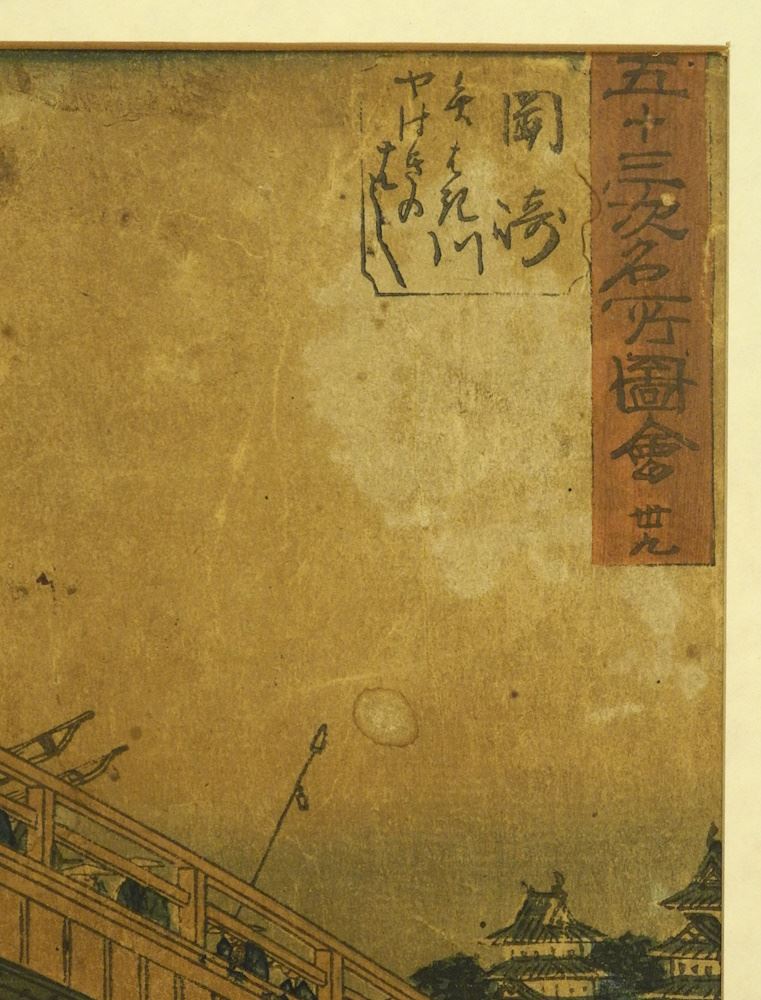 五十三次名所圖會 卅九
岡崎
矢はき川
やはきのはし